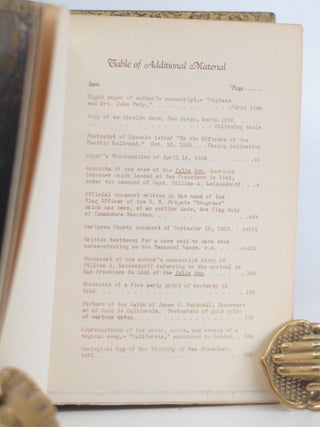 Table of Additional Material
Item Page......
Eight pages of author's manuscript, "Captain
and Mrs. John Paty." . . . First item
Copy of an Alcalde deed, San Diego, March 1838.
. . . Following table
Photostat of Lincoln letter "To the Officers of the
Pacific Railroad." Oct. 13, 1863. . Facing dedication
Mayor's Proclamation of April 18, 1906. . . . vi
Accounts of the crew of the Julia Ann, American
Schooner which landed at San Francisco in 1841,
under the command of Capt. William A. Leidesdorff. . x
Official document written in the hand of the
Flag Officer of the U. S. Frigate "Congress"
which had been, at an earlier date, the flag ship
of Commodore Stockton. . . . xiv
Mariposa County document of September 18, 1853. . xviii
Written testimony for a case said to have been
horse-stealing on the
William A. Leidesdorff referring to the arrival in
San Francisco in 1841 of the Julia Ann. . . . 124
Photostat of a fine early print of Monterey in
1842
Picture of the Cabin of James W. Marshall, Discover-
er of Gold in California. Photostats of gold
of various dates.
Reproductions of the cover, score, and verses of a
topical song, "California," published in London. .
Geological Map of the Vicinity of San Francisco,